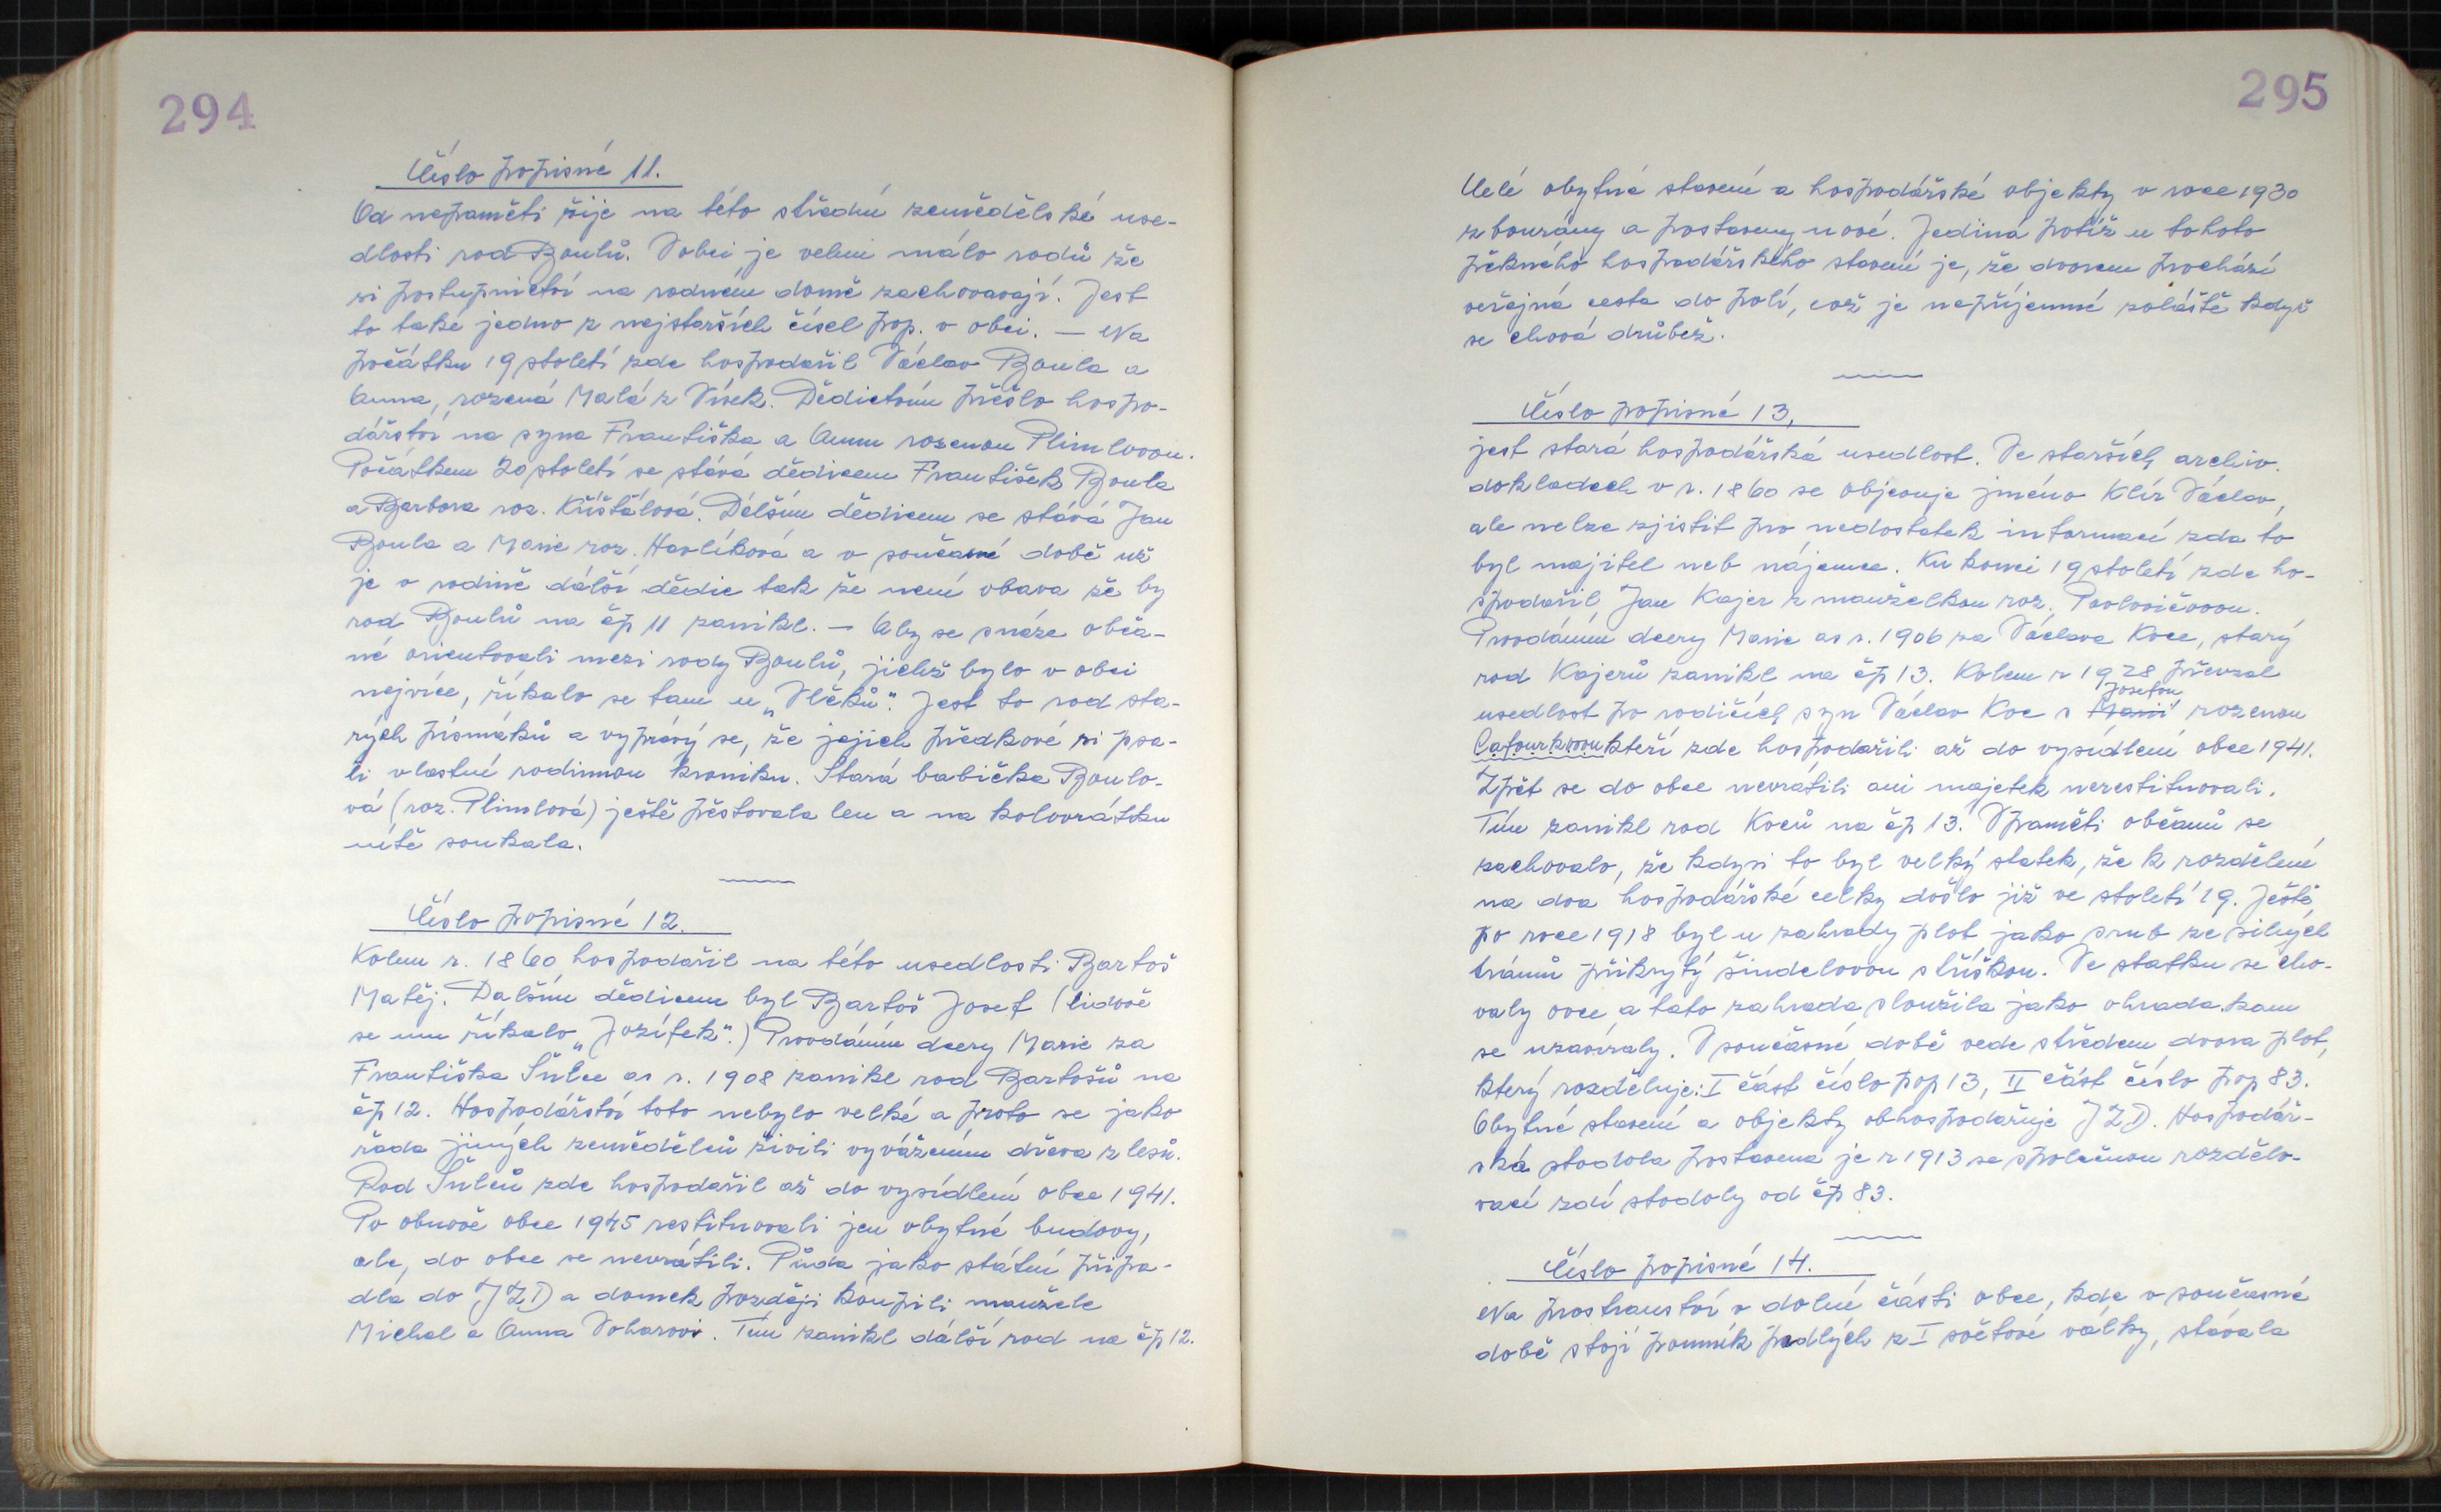 294
Číslo popisné 11.
Od nepaměti žije na této střední zemědělské use-
dlosti rod Boulů. Vobci je velmi málo rodů že
si postupnictví na rodném domě zachovavají. Jest
to také jedno z nejstarších čísel pop. v obci. — Na
počátku 19 století zde hospodařil Václav Boula a
Anna, rozená Malá z Vísek. Dědictvím přešlo hospo-
dářství na syna Františka a Annu rozenou Plimlovou.
Počátkem 20 století se stává dědicem František Boula
a Barbora roz. Křišťálová. Dálším dědicem se stává Jan
Boula a Marie roz. Havlíková a v současné době už
je v rodině dálší dědic tak že není obava že by
rod Boulů na čp 11 zanikl. — Aby se snáze obča-
né orientovali mezi rody Boulů, jichž bylo v obci
nejvíce, říkalo se tam u „Vlčků". Jest to rod sta-
rých písmáků a vypráví se, že jejich předkové si psa-
li vlastní rodinnou kroniku. Stará babička Boulo-
vá (roz. Plimlová) ještě pěstovala len a na kolovrátku
nitě soukala.
Číslo popisné 12.
Kolem r. 1860 hospodařil na této usedlosti Bartoš
Matěj. Dalším dědicem byl Bartoš Josef (lidově
se mu říkalo „Jozífek".) Provdáním dcery Marie za
Františka Šulce as r. 1908 zanikl rod Bartošů na
čp 12. Hospodářství toto nebylo velké a proto se jako
řada jiných zemědělců živili vyvážením dřeva z lesů.
Rod Šulců zde hospodařil až do vysídlení obce 1941.
Po obnově obce 1945 restituovali jen obytné budovy,
ale, do obce se nevrátili. Půda jako státní připa-
dla do JZD a domek později koupili manžele
Michal a Anna Voharovi. Tím zanikl dálší rod na čp 12.
295
Celé obytné stavení a hospodářské objekty v roce 1930
zbourány a postaveny nové. Jediná potíž u tohoto
pěkného hospodářského stavení je, že dvorem prochází
veřejná cesta do polí, což je nepříjemné zoláště když
se chová drůbež.
Číslo popisné 13,
jest stará hospodářská usedlost. Ve starších archiv.
dokladech v r. 1860 se objevuje jméno Klír Václav,
ale nelze zjistit pro nedostatek informací zda to
byl majitel neb nájemce. Ku konci 19 století zde ho-
spodařil Jan Kajer z manželkou roz. Pavlovičovou.
Provdáním dcery Marie as r. 1906 za Václava Koce, starý
rod Kajerů zanikl na čp 13. Kolem r 1928 převzal
usedlost po rodičích syn Václav Koc s Marií Josefou rozenou
Cafourkovou kteří zde hospodařili až do vysídlení obce 1941.
Zpět se do obce nevrátili ani majetek nerestituovali.
Tím zanikl rod Koců na čp 13. Vpaměti občanů se
zachovalo, že kdysi to byl velký statek, že k rozdělení
na dva hospodářské celky došlo již ve století 19. Ještě
po roce 1918 byl u zahrady plot jako srub ze silných
trámů přikrytý šindelovou stříškou. Ve statku se cho-
valy ovce a tato zahrada sloužila jako ohrada kam
se uzavíraly. Vsoučasné době vede středem dvora plot,
který rozděluje: I část číslo pop 13, II část číslo pop 83.
Obytné stavení a objekty obhospodařuje JZD. Hospodář-
ská stodola postavena je r 1913 se společnou rozdělo-
vací zdí stodoly od čp 83.
Číslo popisné 14.
Na prostranství v dolní části obce, kde v současné
době stojí pomník padlých z I světové války, stávala